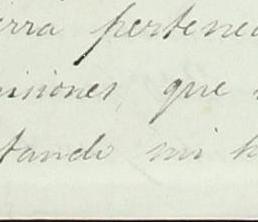 erra pertenec
misiones, que
tando mi h